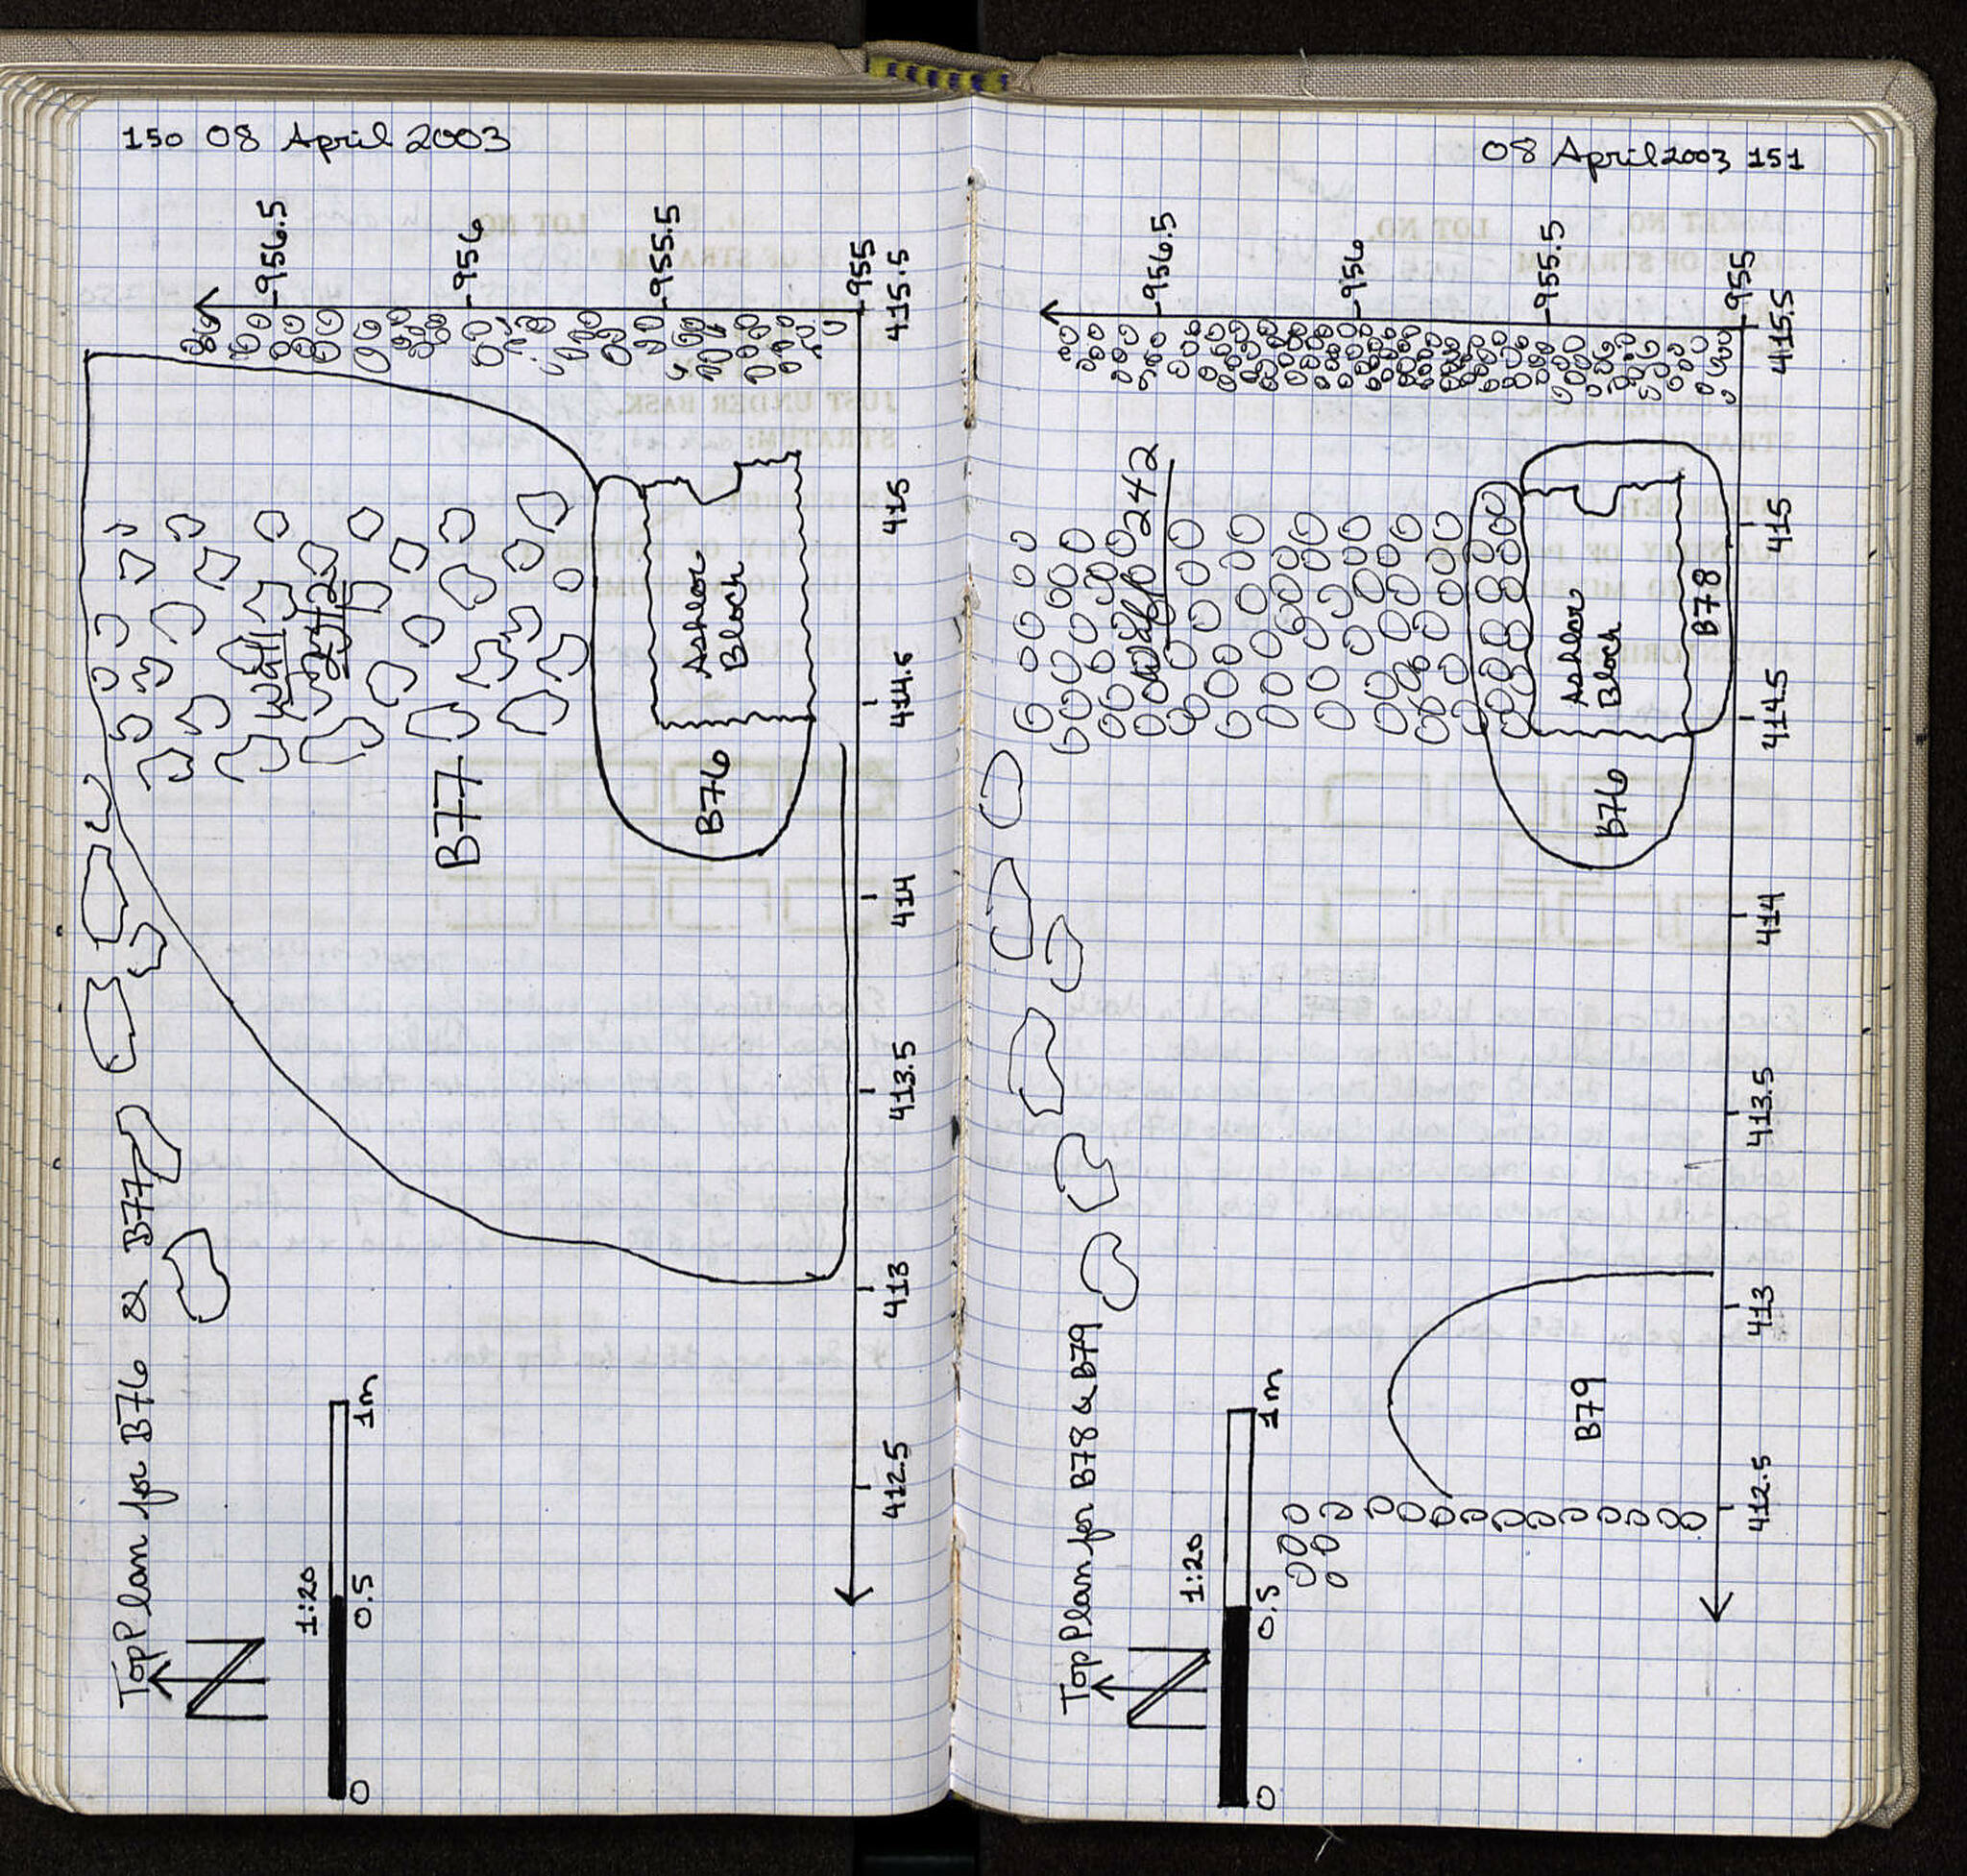 150 08 April 2003
Top Plan for B76 & B77
N
1:20
0
0.5
1m
956.5
956
955.5
955
415.5
415
414.5
414
413.5
413
412.5
Wall
242
B77
Ashlar
Block
B76
08 April 2003 151
Top Plan for B78 & B79
N
1:20
0
0.5
1m
956.5
956
955.5
955
415.5
415
414.5
414
413.5
413
412.5
Wall 242
Ashlar
Block
B78
B76
B79